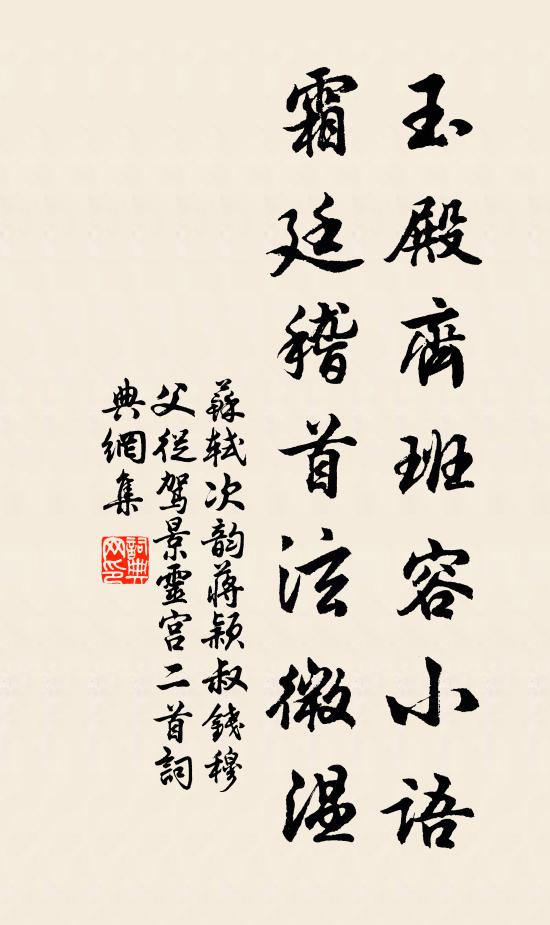 玉殿齊班容小語
霜廷稽首泫微温
蘇軾次韵蔣穎叔錢穆
父從駕景靈宫二首詞
典網集
詞典
网印